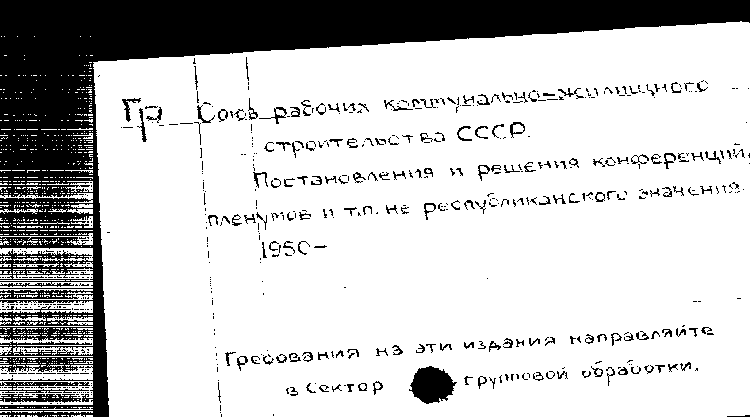 Гр Союз рабочих коммунально-жилищного
строительства СССР.
Постановления и решения конференций,
пленумов и т.п. не республиканского значения.
1950-
Требования на эти издания направляйте
в Сектор групповой обработки.